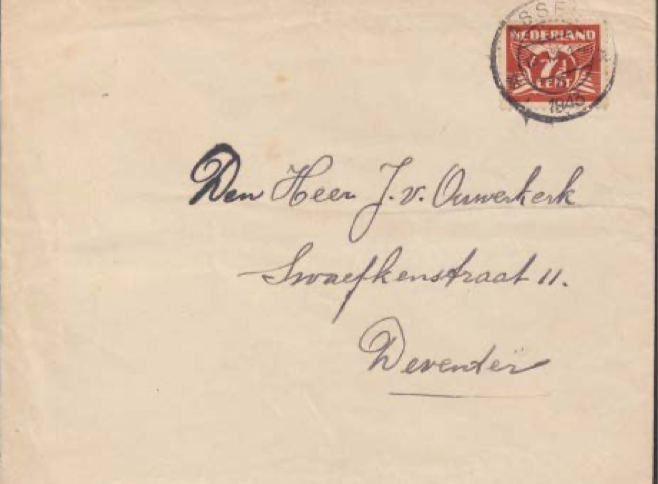 SSE
NEDERLAND
7½
CENT
1945
Den Heer J. v. Ouwerkerk
Swaefkenstraat 11.
Deventer